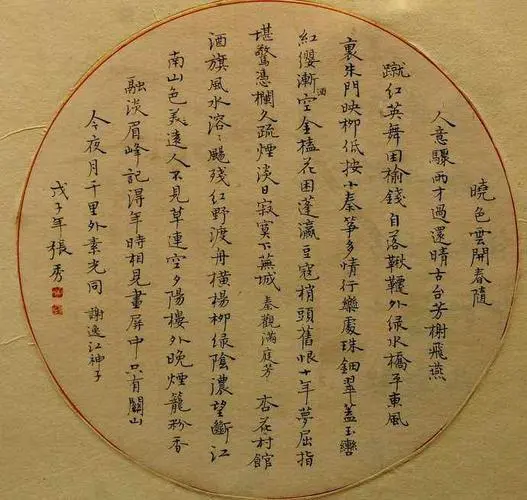 曉色雲開春隨
人意驟雨才過還晴古台芳榭飛燕
蹴紅英舞困榆錢自落鞦韆外綠水橋平東風
裏朱門映柳低按小秦箏多情行樂處珠鈿翠蓋玉轡
紅纓漸酒空金榼花困蓬瀛豆蔻梢頭舊恨十年夢屈指
堪驚憑欄久疏煙淡日寂寞下蕪城 秦觀滿庭芳 杏花村館
酒旗風水溶〻颺殘紅野渡舟橫楊柳綠陰濃望斷江
南山色美遠人不見草連空夕陽樓外晚煙籠粉香
融淡眉峰記得年時相見畫屏中只有關山
今夜月千里外素光同 謝逸江神子
戊子年張秀